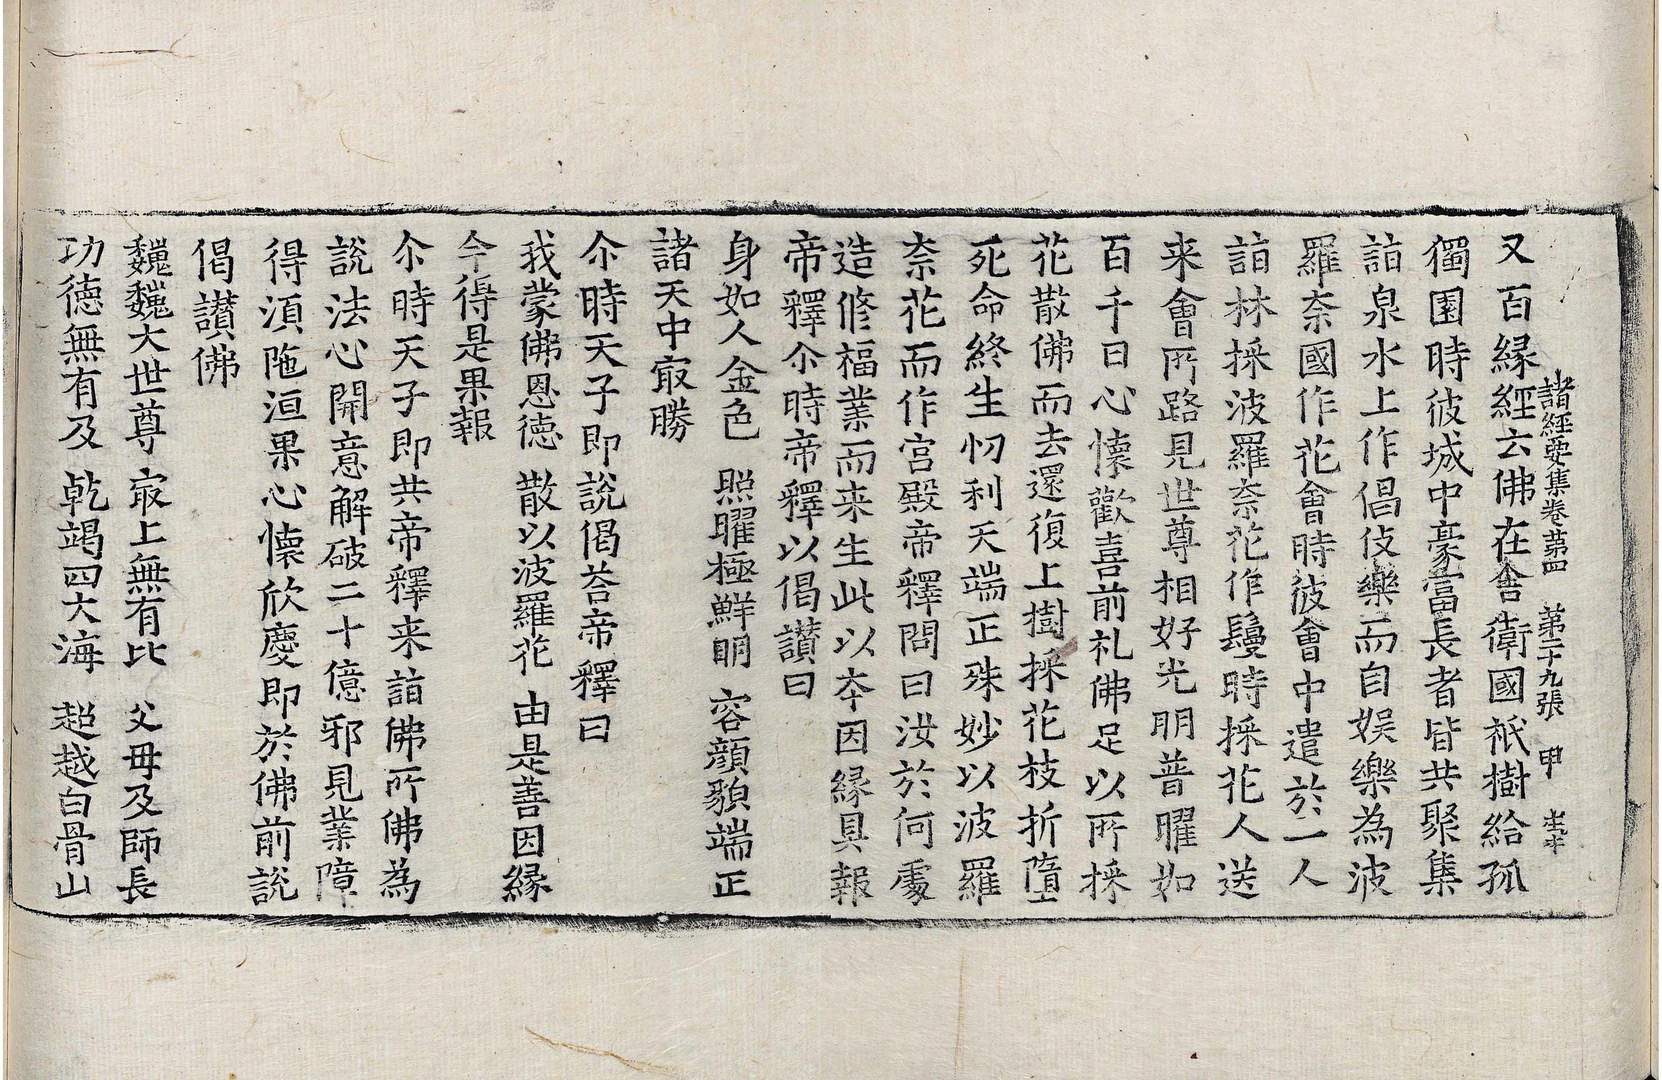 諸經要集卷第四 第二十九張 甲
又百緣經云佛在舍衛國祇樹給孤
獨園時彼城中豪富長者皆共聚集
詣泉水上作倡伎樂而自娱樂為波
羅奈國作花會時彼會中遣於一人
詣林採波羅奈花作鬘時採花人送
来會所路見世尊相好光明普曜如
百千日心懐歡喜前礼佛足以所採
花散佛而去還復上樹採花枝折墮
死命終生忉利天端正殊妙以波羅
奈花而作宮殿帝釋問曰汝於何處
造修福業而来生此以夲因緣具報
帝釋尒時帝釋以偈讃曰
身如人金色 照曜極鮮明 容顔䫉端正
諸天中㝡勝
尒時天子即說偈荅帝釋曰
我蒙佛恩徳 散以波羅花 由是善因緣
今得是果報
尒時天子即共帝釋来詣佛所佛為
說法心開意解破二十億邪見業障
得湏陁洹果心懐欣慶即於佛前說
偈讃佛
巍巍大世尊 㝡上無有比 父母及師長
功徳無有及 乾竭四大海 超越白骨山